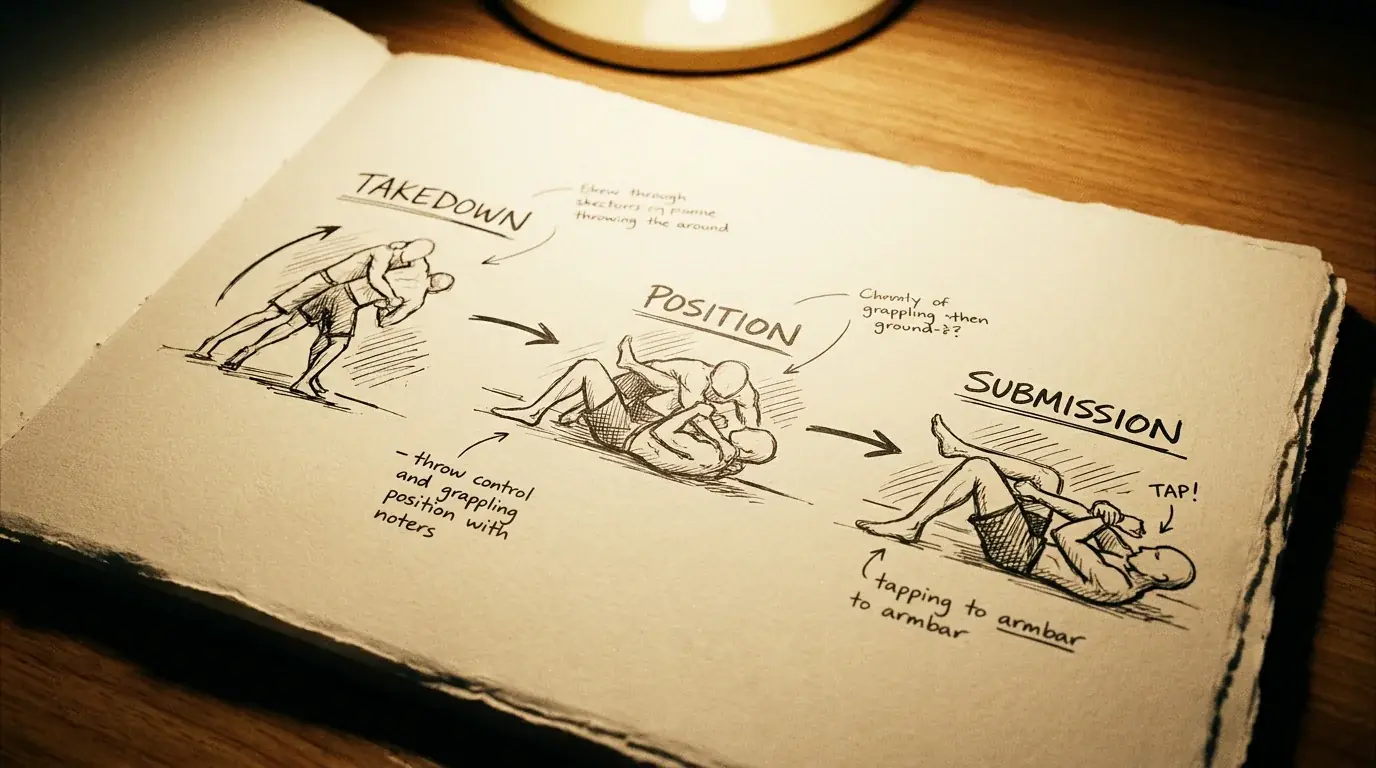 TAKEDOWN
through
throwing the around
POSITION
of
grappling then
ground-
SUBMISSION
TAP!
- throw control
and grappling
position with
noters
tapping to armbar
to armbar